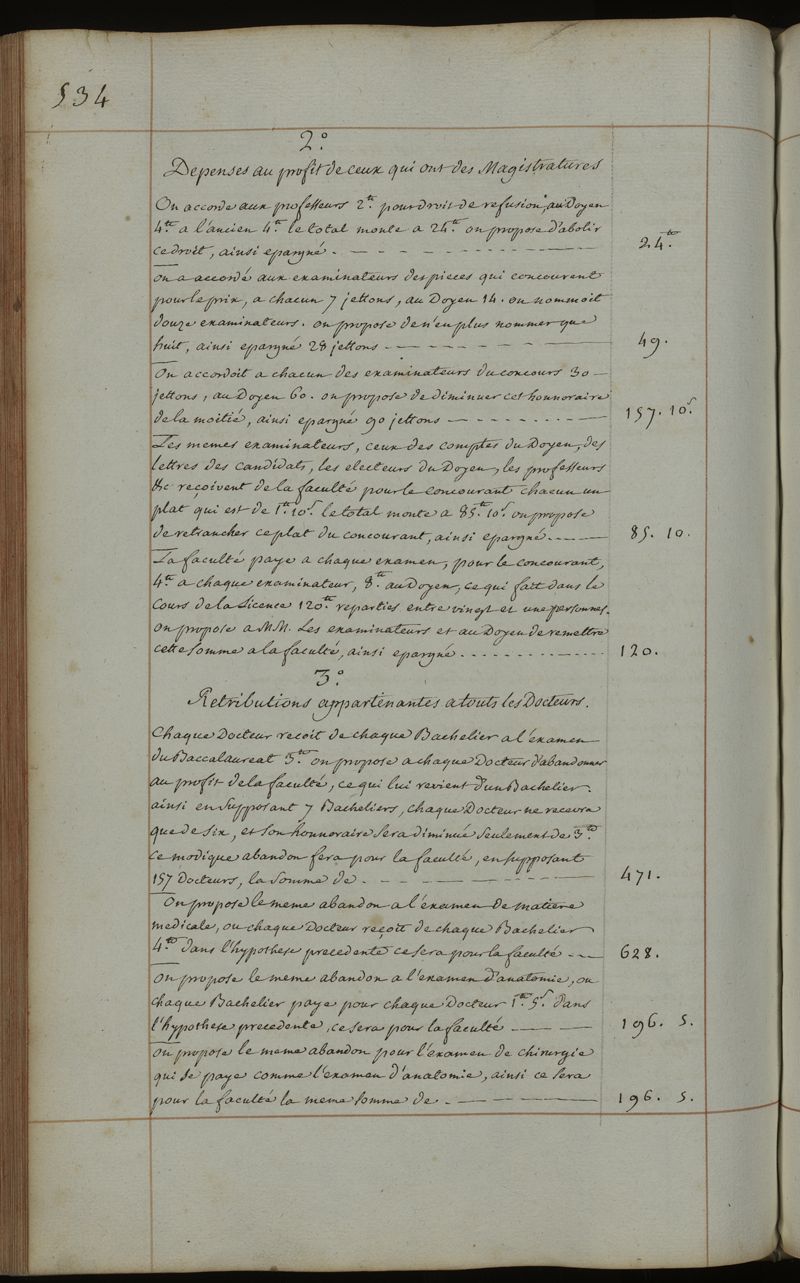 534
2.°
Depenses au profit de ceux qui ont des Magistratures
On accorde aux professeurs 2.tt pour droit de refusion, au Doyen
4.tt a l'ancien 4.tt le total monte a 24.tt on propose d'abolir
ce droit, ainsi epargné. — — — — — 24.tt
on a accordé aux examinateurs des pieces qui concourent
pour le prix, a chacun 7 jettons, au Doyen 14. on nommoit
douze examinateurs. on propose de n'en plus nommer que
huit, ainsi epargné 28 jettons — — — — — 49.
On accordoit a chacun des examinateurs du concours 30
jettons, au Doyen 60. on propose de diminuer cet honnoraire
de la moitié, ainsi epargné 90 jettons — — — — 157. 10.s
Les memes examinateurs, ceux des comptes du Doyen, des
lettres des candidats, les electeurs du Doyen, les professeurs
&c reçoivent de la faculté pour le concourant chacun un
plat qui est de 1.tt 10.s le total monte a 85.tt 10.s on propose
de retrancher ce plat du concourant, ainsi epargné. — — 85. 10.
La faculté paye a chaque examen, pour le concourant,
4.tt a chaque examinateur, 8.tt au Doyen, ce qui fait dans le
Cours de la Licence 120.tt reparties entre vingt et une personnes.
on propose a MM. Les examinateurs et au Doyen de remettre
cette somme a la faculté, ainsi epargné. — — — — 120.
3.°
Retributions appartenantes a touts les Docteurs.
Chaque Docteur recoit de chaque Bachelier a l'examen
du Baccalaureat 3.tt on propose a chaque Docteur d'abandonner
au profit de la faculté, ce qui lui revient d'un Bachelier.
ainsi en supposant 7 Bacheliers, chaque Docteur ne recevra
que de six, et son honnoraire sera diminué seulement de 3.tt
Ce modique abandon fera pour la faculté, en supposant
157 Docteurs, la somme de. — — — — — 471.
On propose le meme abandon a l'examen de matiere
medicale, ou chaque Docteur reçoit de chaque Bachelier
4.tt dans l'hypothese precedente ce sera pour la faculté — — 628.
On propose le meme abandon a l'examen d'anatomie, ou
chaque Bachelier paye pour chaque Docteur 1.tt 5.s dans
l'hypothese precedente, ce sera pour la faculté — — — 196. 5.
on propose le meme abandon pour l'examen de chirurgie
qui se paye comme l'examen d'anatomie, ainsi ce sera
pour la faculté la meme somme de. — — — — 196. 5.